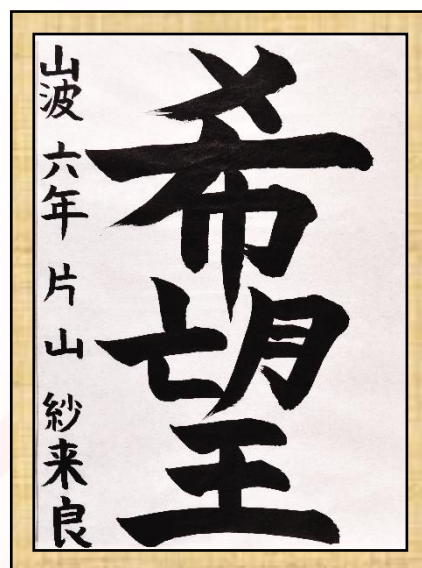 希望
山波 六年 片山 紗来良